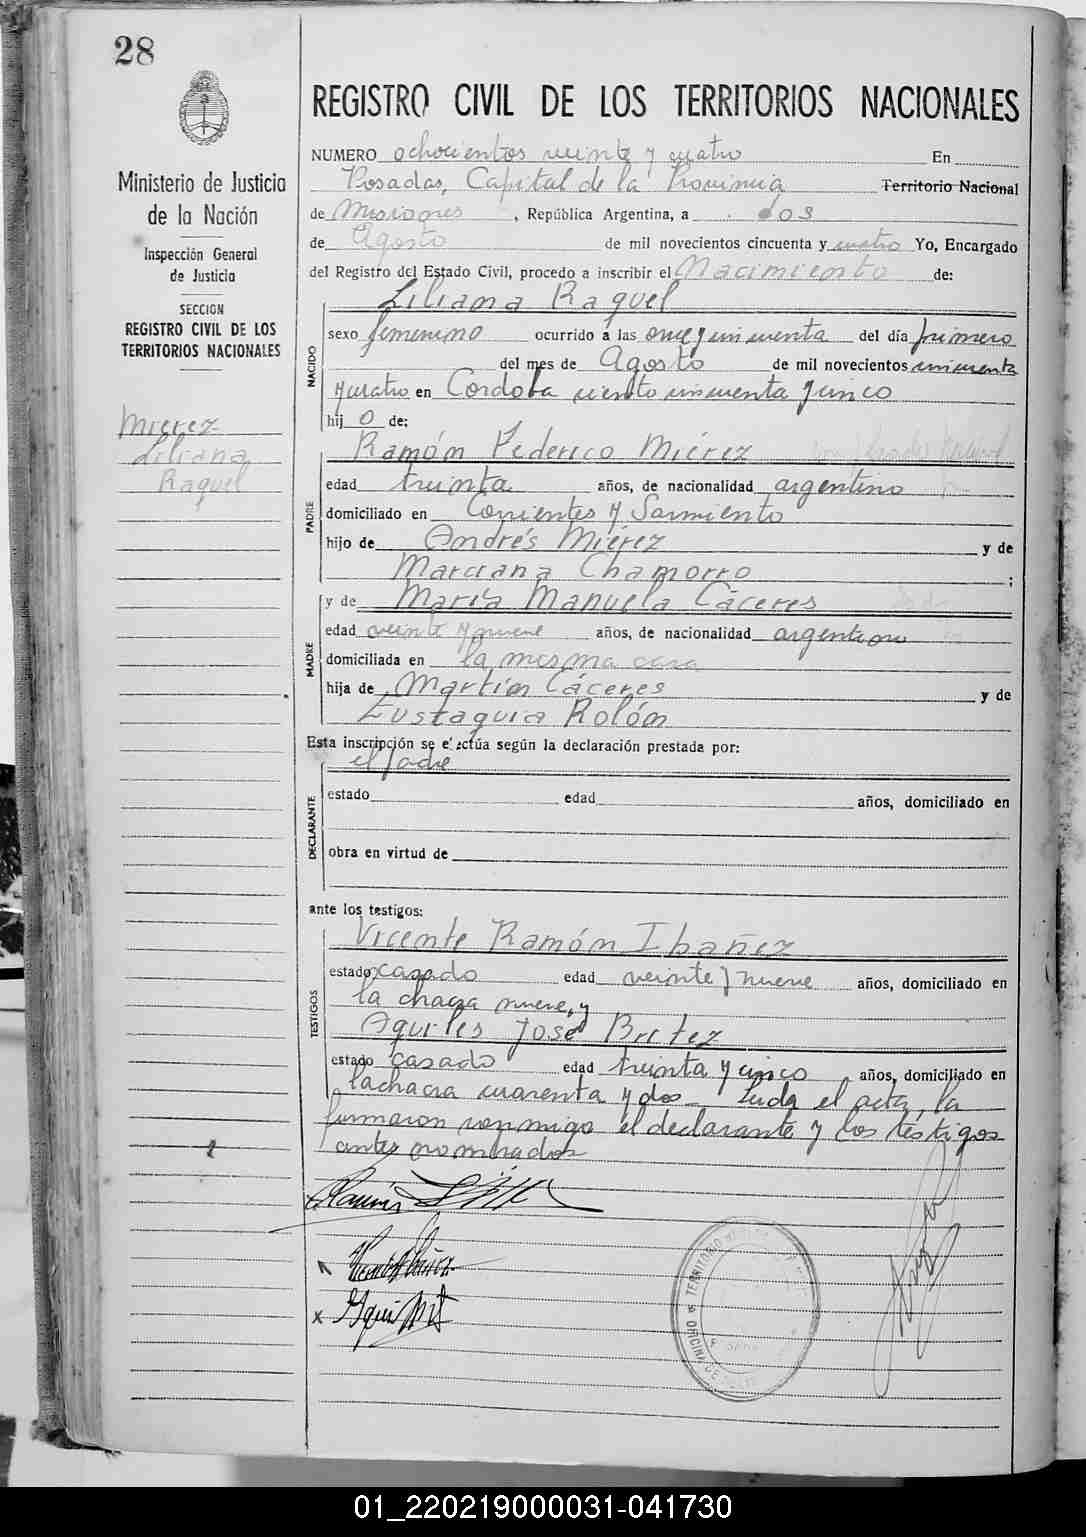 28
Ministerio de Justicia
de la Nación
Inspección General
de Justicia
SECCION
REGISTRO CIVIL DE LOS
TERRITORIOS NACIONALES
Mierez
Liliana
Raquel
REGISTRO CIVIL DE LOS TERRITORIOS NACIONALES
NUMERO ochocientos veinte y cuatro En
Posadas, Capital de la Provincia Territorio Nacional
de Misiones, República Argentina, a dos
de Agosto de mil novecientos cincuenta y cuatro Yo, Encargado
del Registro del Estado Civil, procedo a inscribir el Nacimiento de:
Liliana Raquel
NACIDO
sexo femenino ocurrido a las once y cincuenta del día primero
del mes de Agosto de mil novecientos cincuenta
y cuatro en Cordoba ciento cincuenta y cinco
hij o de:
PADRE
Ramón Federico Miérez
edad treinta años, de nacionalidad argentino
domiciliado en Corrientes y Sarmiento
hijo de Andrés Miérez y de
Marciana Chamorro ;
MADRE
y de María Manuela Cáceres
edad veinte y nueve años, de nacionalidad argentina
domiciliada en la misma casa
hija de Martín Cáceres y de
Eustaquia Rolón
Esta inscripción se efectúa según la declaración prestada por:
el padre
DECLARANTE
estado edad años, domiciliado en
obra en virtud de
ante los testigos:
TESTIGOS
Vicente Ramón Ibañez
estado casado edad veinte y nueve años, domiciliado en
la chacra nueve, y
Aquiles José Britez
estado casado edad treinta y cinco años, domiciliado en
la chacra cuarenta y dos Leida el acta, la
firmaron conmigo el declarante y los testigos
antes nombrados
TERRITORIO
OFICINA DE
01_220219000031-041730